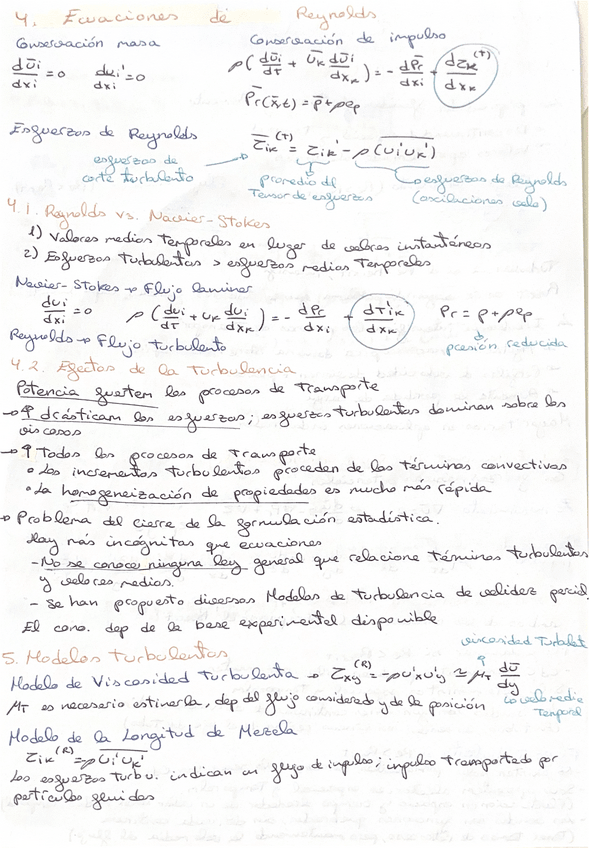 4. Ecuaciones de Reynolds
Conservación masa
Conservación de impulso
dūi/dxi = 0   dui'/dxi = 0
ρ(dūi/dτ + ūk dūi/dxk) = - dP̄r/dxi + dτik^(T)/dxk
P̄r(x̄,t) = p̄ + ρep
Esfuerzos de Reynolds
τ̄ik^(T) = τik' - ρ(ui'uk')
esfuerzos de
corte turbulento
promedio del
Tensor de esfuerzos
esfuerzos de Reynolds
(oscilaciones velo)
4.1. Reynolds vs. Navier-Stokes
1) Valores medios Temporales en lugar de valores instantáneos
2) Esfuerzos Turbulentos > esfuerzos medios Temporales
Navier-Stokes → Flujo laminar
dui/dxi = 0   ρ(dui/dτ + uk dui/dxk) = - dPr/dxi + dτik/dxk   Pr = p + ρep
presión reducida
Reynolds → Flujo turbulento
4.2. Efectos de la Turbulencia
Potencia fuertem los procesos de Transporte
→ ↑ drásticam los esfuerzos; esfuerzos turbulentos dominan sobre los
viscosos
→ ↑ Todos los procesos de Transporte
• Los incrementos turbulentos proceden de los términos convectivos
• La homogeneización de propiedades es mucho más rápida
→ Problema del cierre de la formulación estadística.
Hay más incógnitas que ecuaciones
- No se conoce ninguna ley general que relacione términos turbulentos
y valores medios.
- Se han propuesto diversos Modelos de Turbulencia de validez parcial.
El cono. dep de la base experimental disponible
viscosidad Turbulenta
5. Modelos turbulentos
Modelo de Viscosidad turbulenta → τxy^(R) = -ρu'xu'y ≃ μT dū/dy
velo media
Temporal
μT es necesario estimarla, dep del flujo considerado y de la posición
Modelo de la Longitud de Mezcla
τik^(R) = ρ ui'uk'
Los esfuerzos turbu. indican un flujo de impulso; impulso transportado por
partículas fluidas